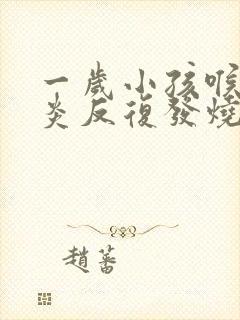 一歲小孩喉
炎反復發燒
趙蕃